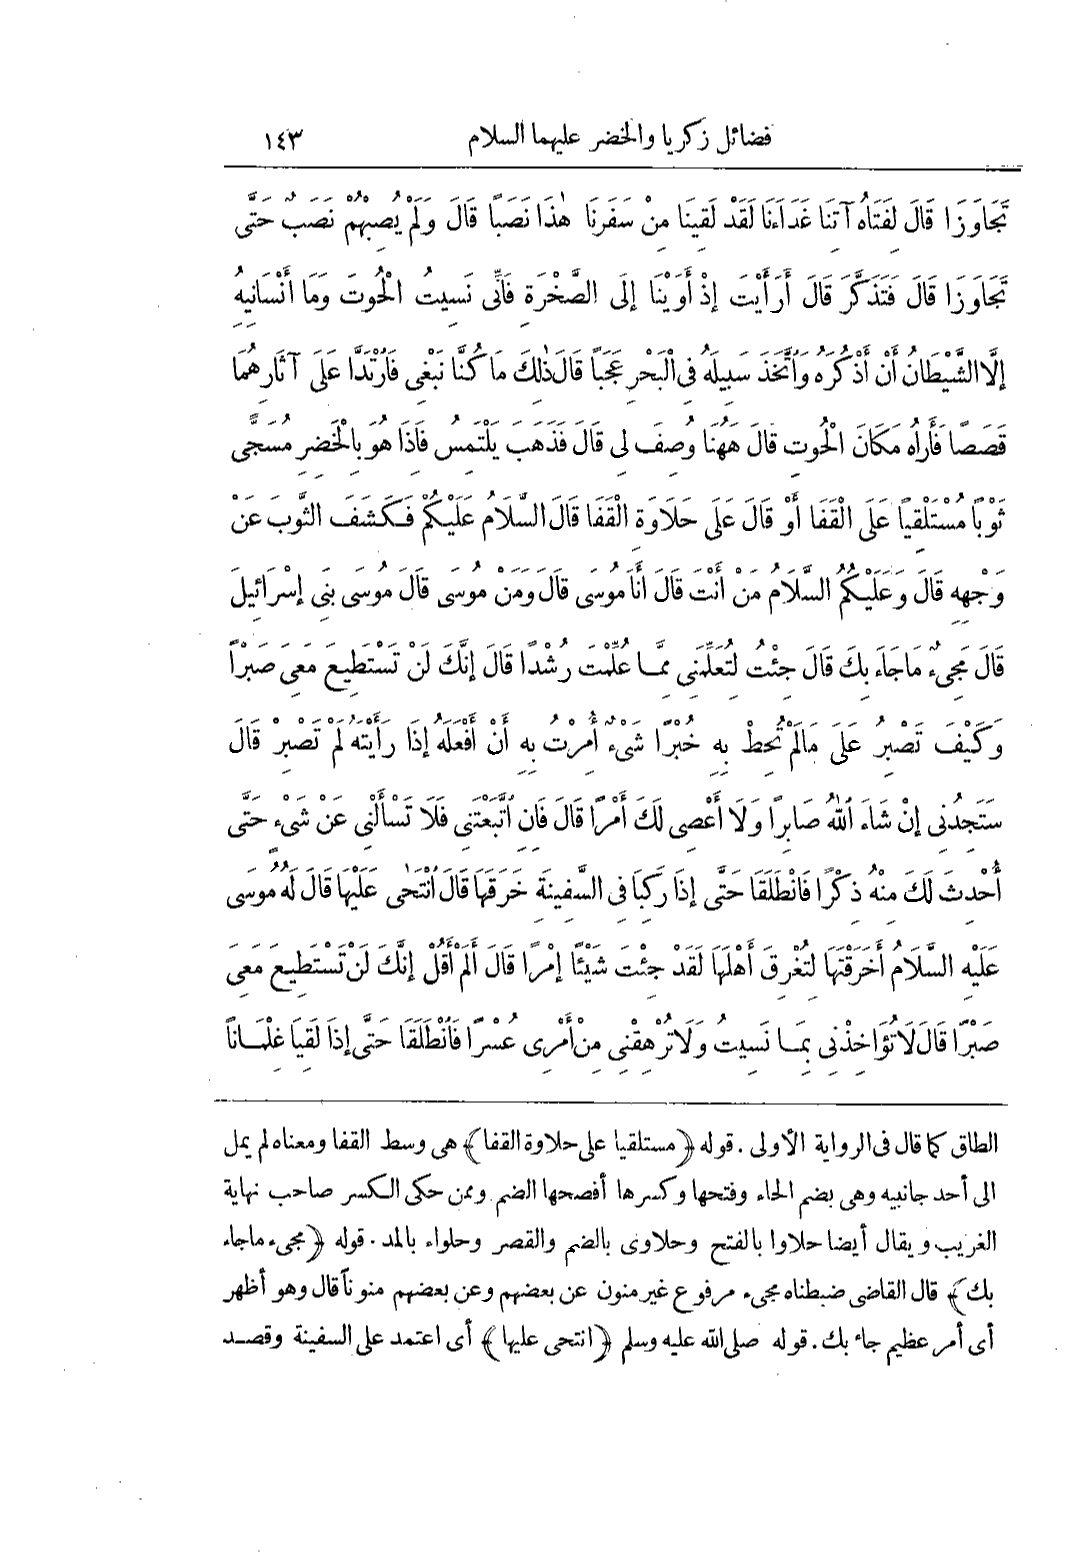 فضائل زكريا والخضر عليهما السلام ١٤٣
تَجَاوَزَا قَالَ لِفَتَاهُ آتِنَا غَدَاءَنَا لَقَدْ لَقِينَا مِنْ سَفَرِنَا هٰذَا نَصَبًا قَالَ وَلَمْ يُصِبْهُمْ نَصَبٌ حَتَّى
تَجَاوَزَا قَالَ فَتَذَكَّرَ قَالَ أَرَأَيْتَ إِذْ أَوَيْنَا إِلَى الصَّخْرَةِ فَإِنِّى نَسِيتُ الْحُوتَ وَمَا أَنْسَانِيهُ
إِلَّا الشَّيْطَانُ أَنْ أَذْكُرَهُ وَاتَّخَذَ سَبِيلَهُ فِى الْبَحْرِ عَجَبًا قَالَ ذٰلِكَ مَا كُنَّا نَبْغِى فَارْتَدَّا عَلَى آثَارِهِمَا
قَصَصًا فَأَرَاهُ مَكَانَ الْحُوتِ قَالَ هٰهُنَا وُصِفَ لِى قَالَ فَذَهَبَ يَلْتَمِسُ فَإِذَا هُوَ بِالْخَضِرِ مُسَجًّى
ثَوْبًا مُسْتَلْقِيًا عَلَى الْقَفَا أَوْ قَالَ عَلَى حَلَاوَةِ الْقَفَا قَالَ السَّلَامُ عَلَيْكُمْ فَكَشَفَ الثَّوْبَ عَنْ
وَجْهِهِ قَالَ وَعَلَيْكُمُ السَّلَامُ مَنْ أَنْتَ قَالَ أَنَا مُوسَى قَالَ وَمَنْ مُوسَى قَالَ مُوسَى بَنِى إِسْرَائِيلَ
قَالَ مَجِىءٌ مَا جَاءَ بِكَ قَالَ جِئْتُ لِتُعَلِّمَنِى مِمَّا عُلِّمْتَ رُشْدًا قَالَ إِنَّكَ لَنْ تَسْتَطِيعَ مَعِىَ صَبْرًا
وَكَيْفَ تَصْبِرُ عَلَى مَا لَمْ تُحِطْ بِهِ خُبْرًا شَىْءٌ أُمِرْتُ بِهِ أَنْ أَفْعَلَهُ إِذَا رَأَيْتَهُ لَمْ تَصْبِرْ قَالَ
سَتَجِدُنِى إِنْ شَاءَ اللهُ صَابِرًا وَلَا أَعْصِى لَكَ أَمْرًا قَالَ فَإِنِ اتَّبَعْتَنِى فَلَا تَسْأَلْنِى عَنْ شَىْءٍ حَتَّى
أُحْدِثَ لَكَ مِنْهُ ذِكْرًا فَانْطَلَقَا حَتَّى إِذَا رَكِبَا فِى السَّفِينَةِ خَرَقَهَا قَالَ انْتَحَى عَلَيْهَا قَالَ لَهُ مُوسَى
عَلَيْهِ السَّلَامُ أَخَرَقْتَهَا لِتُغْرِقَ أَهْلَهَا لَقَدْ جِئْتَ شَيْئًا إِمْرًا قَالَ أَلَمْ أَقُلْ إِنَّكَ لَنْ تَسْتَطِيعَ مَعِىَ
صَبْرًا قَالَ لَا تُؤَاخِذْنِى بِمَا نَسِيتُ وَلَا تُرْهِقْنِى مِنْ أَمْرِى عُسْرًا فَانْطَلَقَا حَتَّى إِذَا لَقِيَا غِلْمَانًا
الطاق كما قال فى الرواية الأولى . قوله ﴿ مستلقيا على حلاوة القفا ﴾ هى وسط القفا ومعناه لم يمل
الى أحد جانبيه وهى بضم الحاء وفتحها وكسرها أفصحها الضم وممن حكى الكسر صاحب نهاية
الغريب ويقال أيضا حلاوا بالفتح وحلاوى بالضم والقصر وحلواء بالمد . قوله ﴿ مجىء ماجاء
بك ﴾ قال القاضى ضبطناه مجىء مرفوع غير منون عن بعضهم وعن بعضهم منوناً قال وهو أظهر
أى أمر عظيم جاء بك . قوله صلى الله عليه وسلم ﴿ انتحى عليها ﴾ أى اعتمد على السفينة وقصد